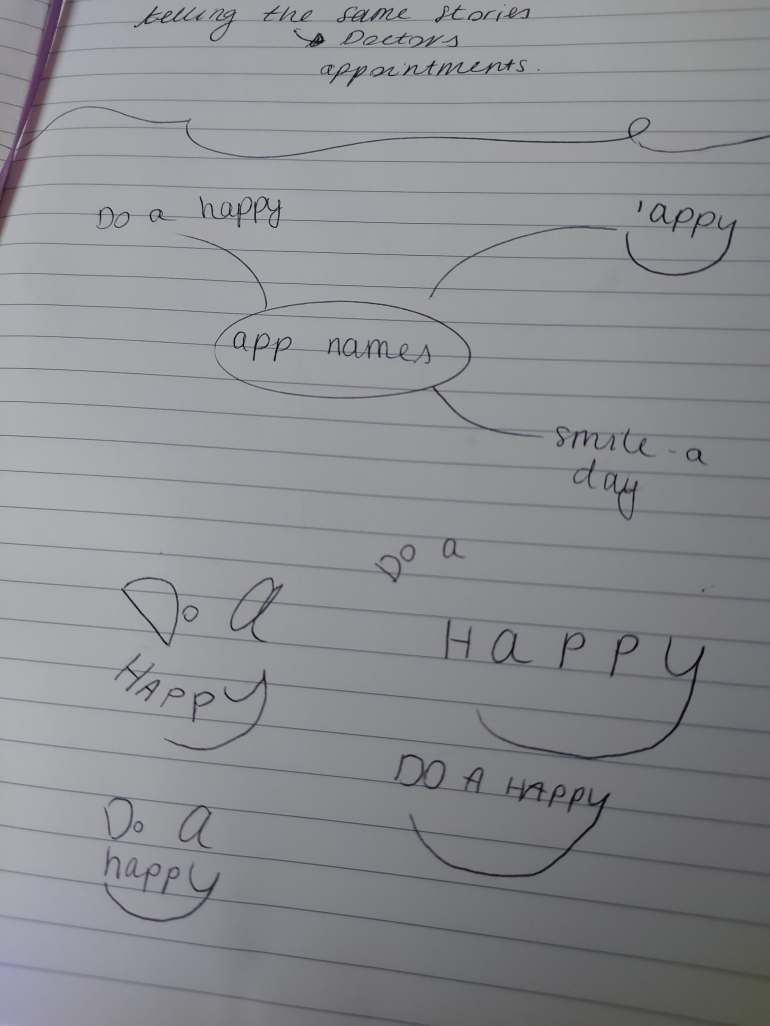 telling the same stories
Doctors
appointments.
Do a happy
'appy
app names
smile-a
day
Do a
Do A
HAPPY
HAPPY
DO A HAPPY
Do A
happy